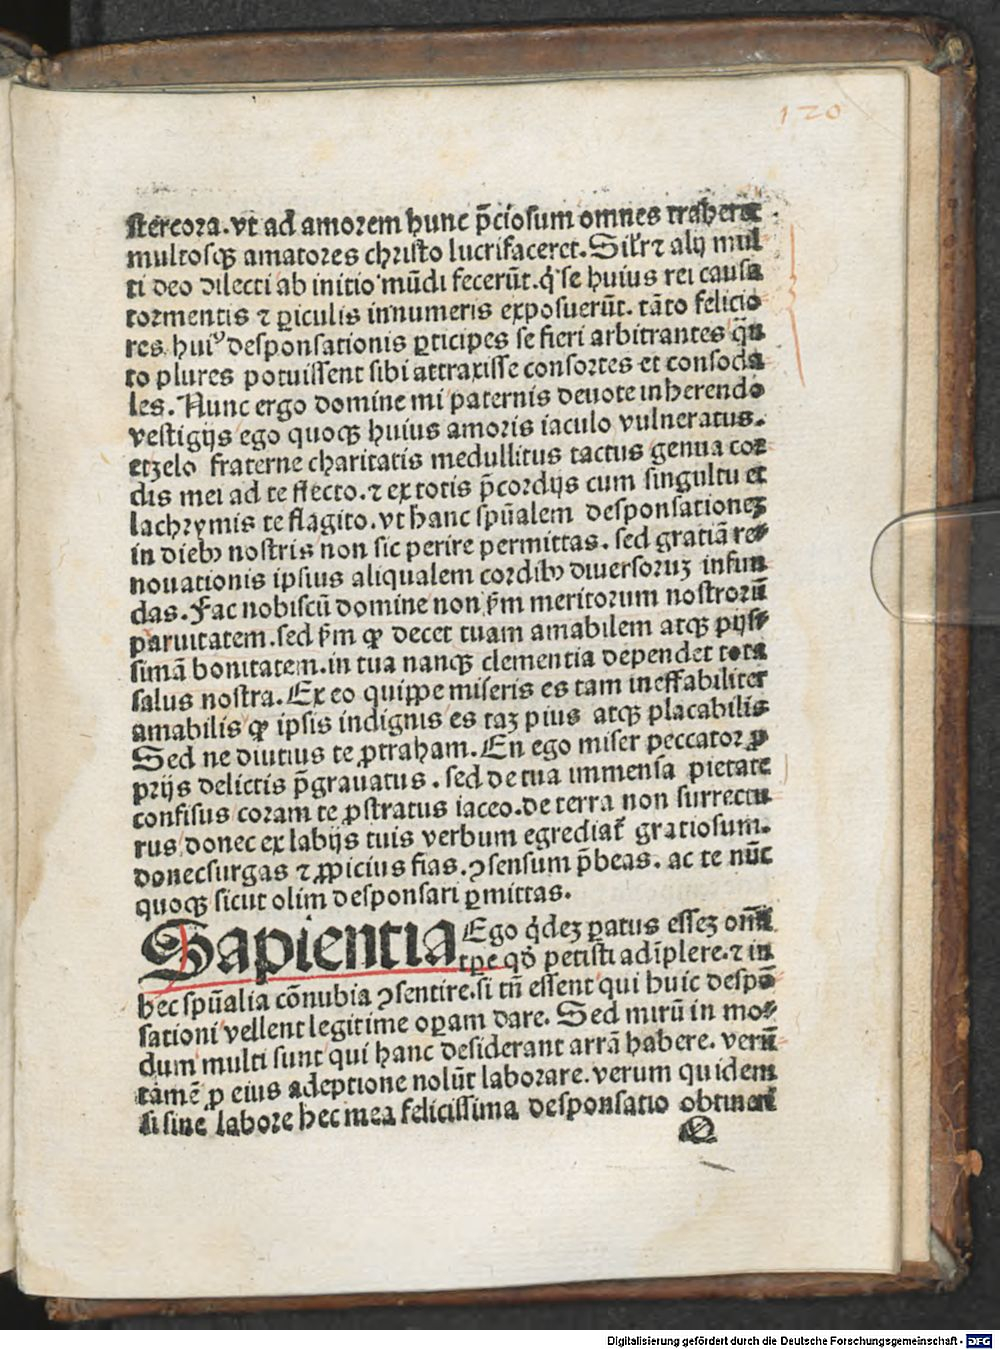 120
stercora. vt ad amorem hunc p̄ciosum omnes trahere
multosq; amatores christo lucrifaceret. Silr̄ ⁊ alij mul
ti deo dilecti ab initio mūdi fecerūt. q̇ se huius rei causa
tormentis ⁊ ꝑiculis innumeris exposuerūt. tāto felicio
res huiꝰ desponsationis ꝑticipes se fieri arbitrantes q̄n
to plures potuissent sibi attraxisse consortes et consoda
les. Nunc ergo domine mi paternis deuote inherendo
vestigijs ego quoq; huius amoris iaculo vulneratus.
et zelo fraterne charitatis medullitus tactus genua cor
dis mei ad te flecto. ⁊ ex totis p̄cordijs cum singultu et
lachrymis te flagito. vt hanc spūalem desponsationeꝫ
in dieb⁹ nostris non sic perire permittas. sed gratiā re⸗
nouationis ipsius aliqualem cordib⁹ diuersoruꝫ infun
das. Fac nobiscū domine non ẜm meritorum nostrorū
paruitatem. sed ẜm ꝙ decet tuam amabilem atq; pijs⸗
simā bonitatem. in tua nanq; clementia dependet tota
salus nostra. Ex eo quippe miseris es tam ineffabiliter
amabilis ꝙ ipsis indignis es taꝫ pius atq; placabilis
Sed ne diutius te ꝓtraham. En ego miser peccator ꝓ
prijs delictis p̄grauatus. sed de tua immensa pietate
confisus coram te ꝓstratus iaceo. de terra non surrectu
rus donec ex labijs tuis verbum egrediat᷑ gratiosum.
donec surgas ⁊ ꝓpicius fias. ꝯsensum p̄beas. ac te nūc
quoq; sicut olim desponsari ꝑmittas.
Sapientia Ego q̇deꝫ ꝑatus esseꝫ omni
tꝑe qď petisti adīplere. ⁊ in
hec spūalia cōnubia ꝯsentire. si tn̄ essent qui huic despō
sationi vellent legitime oꝑam dare. Sed mirū in mo⸗
dum multi sunt qui hanc desiderant arrā habere. verū
tamē ꝓ eius adeptione nolūt laborare. verum quidem
si sine labore hec mea felicissima desponsatio obtineri
Q
Digitalisierung gefördert durch die Deutsche Forschungsgemeinschaft - DFG